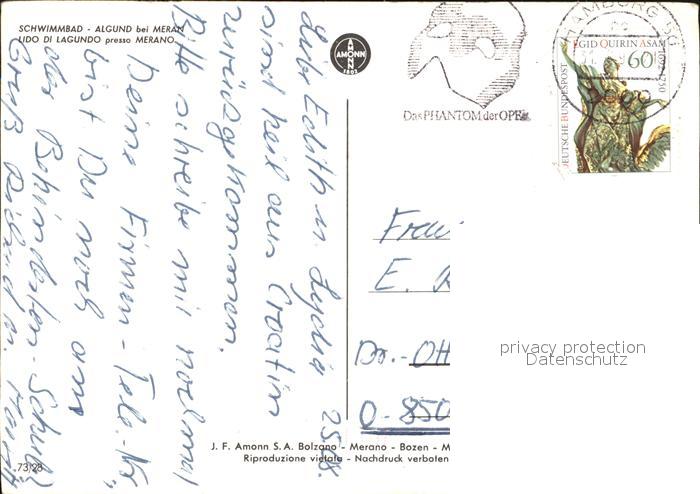 SCHWIMMBAD - ALGUND bei MERAN
LIDO DI LAGUNDO presso MERANO
AMONN
1802
Das PHANTOM der OPER
HAMBURG
EGID QUIRIN ASAM
1692-1750
60
DEUTSCHE BUNDESPOST
Lieb Edith u. Lydia 25.8.
sind heil aus Croatien
zurückgekommen.
Bitte schreibe mir nochmal
Deine Firmen-Tele-Nr.,
bist Du noch am
alter Behinderten-Schule?
Gruß
Frau
E.
Dr.-Ott
O-850
privacy protection
Datenschutz
J. F. Amonn S.A. Bolzano - Merano - Bozen - M
Riproduzione vietata - Nachdruck verboten
73/28